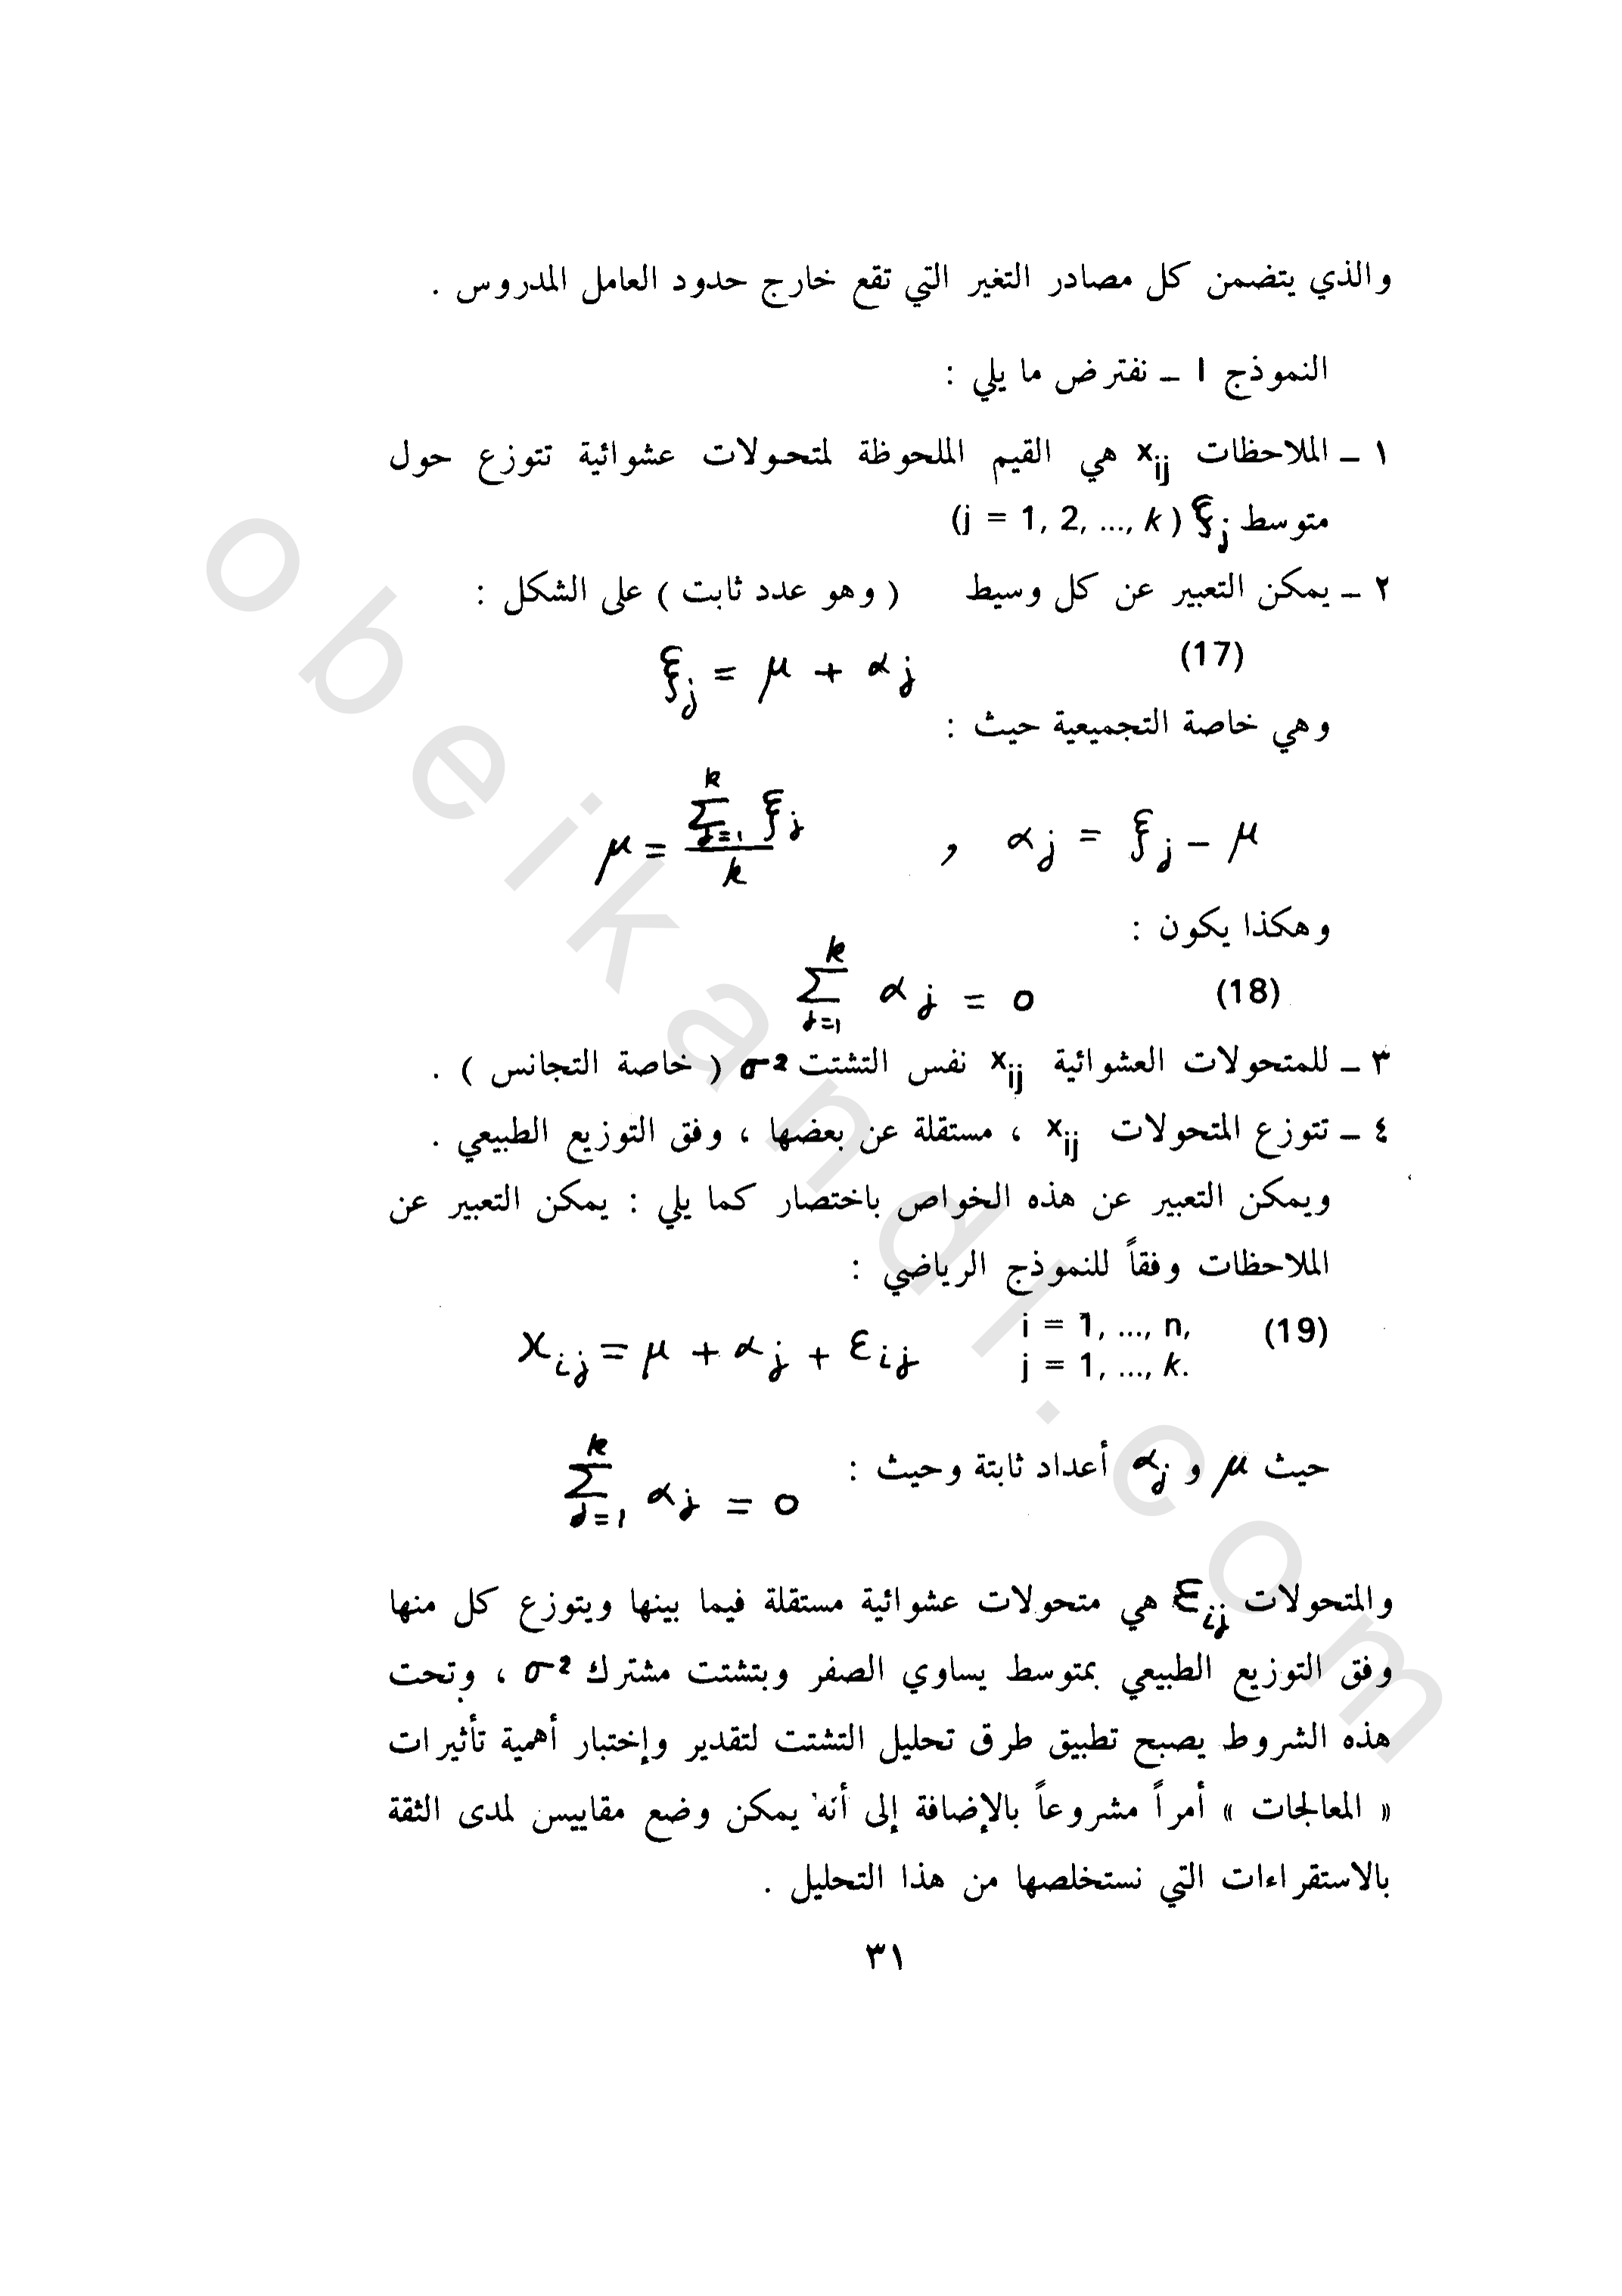 والذي يتضمن كل مصادر التغير التي تقع خارج حدود العامل المدروس .
النموذج I ـ نفترض ما يلي :
١ ـ الملاحظات x_ij هي القيم الملحوظة لمتحولات عشوائية تتوزع حول
متوسط ξ_j (j = 1, 2, ..., k)
٢ ـ يمكن التعبير عن كل وسيط ( وهو عدد ثابت ) على الشكل :
(17) ξ_j = μ + α_j
وهي خاصة التجميعية حيث :
α_j = ξ_j − μ , μ = (∑_{j=1}^{k} ξ_j) / k
وهكذا يكون :
(18) ∑_{j=1}^{k} α_j = 0
٣ ـ للمتحولات العشوائية x_ij نفس التشتت σ² ( خاصة التجانس ) .
٤ ـ تتوزع المتحولات x_ij ، مستقلة عن بعضها ، وفق التوزيع الطبيعي .
ويمكن التعبير عن هذه الخواص باختصار كما يلي : يمكن التعبير عن
الملاحظات وفقاً للنموذج الرياضي :
(19) x_ij = μ + α_j + ε_ij i = 1, ..., n, j = 1, ..., k.
حيث μ و α_j أعداد ثابتة وحيث : ∑_{j=1}^{k} α_j = 0
والمتحولات ε_ij هي متحولات عشوائية مستقلة فيما بينها ويتوزع كل منها
وفق التوزيع الطبيعي بمتوسط يساوي الصفر وبتشتت مشترك σ² ، وتحت
هذه الشروط يصبح تطبيق طرق تحليل التشتت لتقدير وإختبار أهمية تأثيرات
« المعالجات » أمراً مشروعاً بالإضافة إلى أنه يمكن وضع مقاييس لمدى الثقة
بالاستقراءات التي نستخلصها من هذا التحليل .
٣١
obeikandl.com